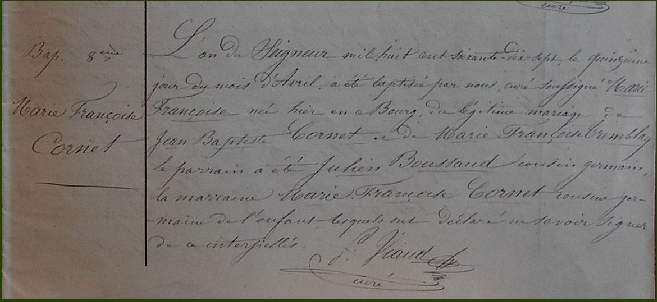 curé
Bap. 8ème
Marie Françoise
Cornet
L'an du Seigneur mil huit cent soixante-dix sept, le quinzième
jour du mois d'Avril, a été baptisée par nous, curé soussigné Marie
Françoise née hier en ce Bourg, du légitime mariage de
Jean Baptiste Cornet et de Marie Françoise Tremblay
le parrain a été Julien Boussaud cousin germain,
la marraine Marie Françoise Cornet cousine ger-
maine de l'enfant, lesquels ont déclaré ne savoir signer
de ce interpellés.
Viaud
curé